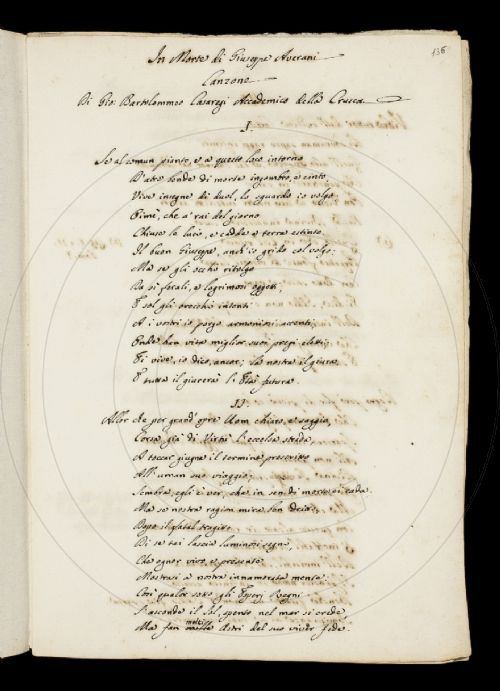 136
In Morte di Giuseppe Averani
Canzone
Di Gio: Bartolommeo Casaregi Accademico della Crusca
I.
Se al comun pianto, e a questo loco intorno
D'atre bende di morte ingombro, e cinto,
Vive insegne di duol, lo sguardo io volgo,
Oimè, che a' rai del giorno
Chiuse la luci, e cadde a terra estinto
Il buon Giuseppe, anch'io grido col volgo;
Ma se gli occhi ritolgo
Da sì ferali, e lagrimosi oggetti;
E sol gli orecchi intenti
A i vostri io porgo armoniosi accenti,
Onde han vita miglior suoi pregi eletti;
Ei vive, io dico, ancor; la nostra il giura
E tutta il giurerà l'Età futura.
II.
Allor che per grand'opre Uom chiaro, e saggio,
Corsa già di Virtù l'eccelsa strada,
A toccar giugne il termine prescritto
All'uman suo viaggio;
Sembra, egli è ver, che in sen di morte ei cada.
Ma se nostra ragion mira ben dritto,
Dopo il fatal tragitto
Di se tai lascia luminosi segni,
Che ognor vivo e presente
Mostrasi a nostra innamorata mente.
Così qualor sotto gli Esperj Regni
S'asconde il Sol, spento nel mar si crede
Ma fan molti Astri del suo viver fede.